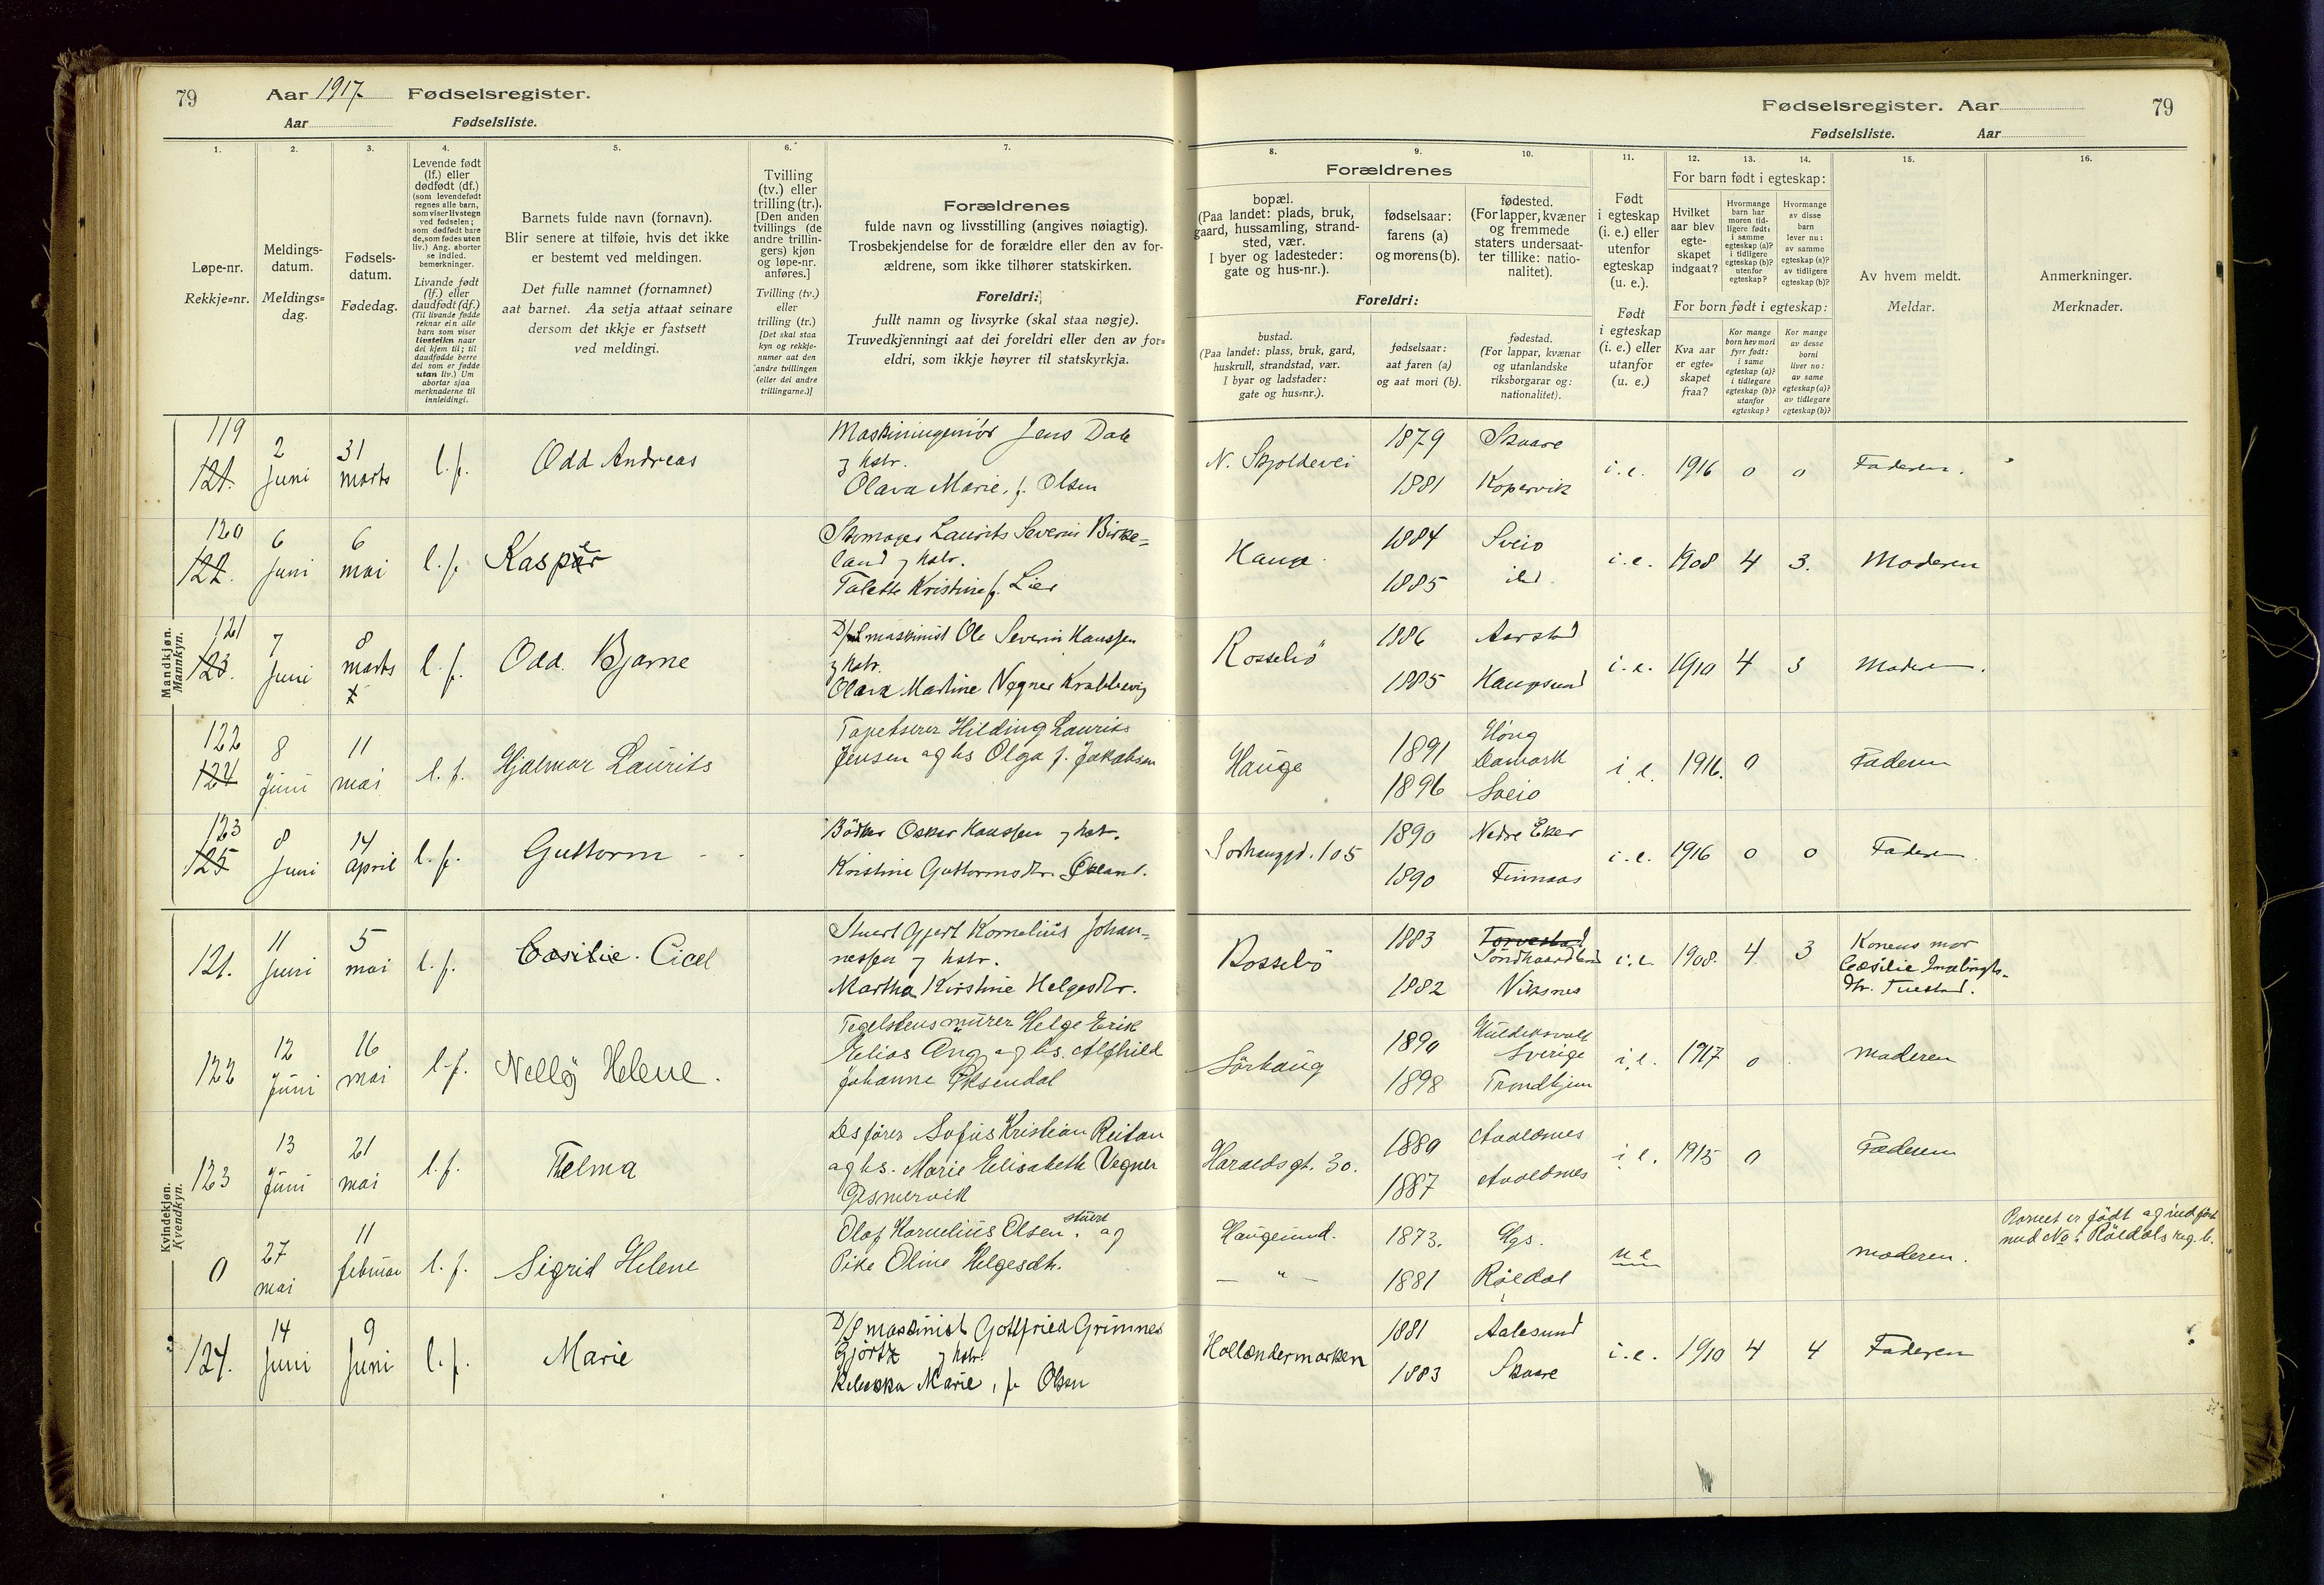 79 Aar 1917 Fødselsregister.
Aar Fødselsliste.
Fødselsregister. Aar 79
Fødselsliste. Aar
1.
Løpe-nr.
Rekkje=nr.
2.
Meldings-
datum.
Meldings=
dag.
3.
Fødsels-
datum.
Fødedag.
4.
Levende født
(lf.) eller
dødfødt (df.)
(som levendefødt
regnes alle barn,
som viser livstegn
ved fødselen;
som dødfødt bare
de, som fødes uten
liv.) Ang. aborter
se indled.
bemerkninger.
Livande født
(lf.) eller
daudfødt (df.)
(Til livande fødde
reknar ein alle
barn som viser
livsteikn naar
dei kjem til; til
daudfødde berre
dei som er fødde
utan liv.) Um
abortar sjaa
merknaderne til
innleidingi.
5.
Barnets fulde navn (fornavn).
Blir senere at tilføie, hvis det ikke
er bestemt ved meldingen.
Det fulle namnet (fornamnet)
aat barnet. Aa setja attaat seinare
dersom det ikkje er fastsett
ved meldingi.
6.
Tvilling
(tv.) eller
trilling (tr.).
[Den anden
tvillings (de
andre trillin-
gers) kjøn
og løpe-nr.
anføres.]
Tvilling (tv.)
eller
trilling (tr.)
[Det skal staa
kyn og rekkje-
numer aat den
andre tvillingen
(eller dei andre
trillingarne.)]
7.
Forældrenes
fulde navn og livsstilling (angives nøiagtig).
Trosbekjendelse for de forældre eller den av for-
ældrene, som ikke tilhører statskirken.
Foreldri:
fullt namn og livsyrke (skal staa nøgje).
Truvedkjenningi aat dei foreldri eller den av for=
eldri, som ikkje høyrer til statskyrkja.
Forældrenes
8.
bopæl.
(Paa landet: plads, bruk,
gaard, hussamling, strand-
sted, vær.
I byer og ladesteder:
gate og hus-nr.).
9.
fødselsaar:
farens (a)
og morens (b).
10.
fødested.
(For lapper, kvæner
og fremmede
staters undersaat-
ter tillike: natio-
nalitet).
Foreldri:
bustad.
(Paa landet: plass, bruk, gard,
huskrull, strandstad, vær.
I byar og ladstader:
gate og hus=nr.).
fødselsaar:
aat faren (a)
og aat mori (b).
fødestad.
(For lappar, kvænar
og utanlandske
riksborgarar og:
nationalitet).
11.
Født
i egteskap
(i. e.) eller
utenfor
egteskap
(u. e.).
Født
i egteskap
(i. e.) eller
utanfor
(u. e.)
12. 13. 14.
For barn født i egteskap:
Hvilket
aar blev
egte-
skapet
indgaat?
Hvormange
barn har
moren tid-
ligere født:
i samme
egteskap (a)?
i tidligere
egteskap (b)?
utenfor
egteskap?
Hvormange
av disse
barn
lever nu:
av samme
egteskap (a)?
av tidligere
egteskap (b)?
For born født i egteskap:
Kva aar
er egte=
skapet
fraa?
Kor mange
born hev mori
fyrr født:
i same
egteskap (a)?
i tidlegare
egteskap (b)?
utanfor
egteskap?
Kor mange
av desse
borni
liver no:
av same
egteskap (a)?
av tidlegare
egteskap (b)?
15.
Av hvem meldt.
Meldar.
16.
Anmerkninger.
Merknader.
Mandkjøn.
Mankyn.
119 121. 2 Juni 31 marts l. f. Odd Andreas
Maskiningeniør Jens Dale
og hstr.
Olava Marie, f. Olsen
N. Skjoldevei 1879 Skaare 1881 Kopervik i. e. 1916 0 0 Faderen.
120 122. 6 Juni 6 mai l. f. Kasper
Skomager Laurits Severin Birke=
land og hstr.
Talette Kristine f. Lier
Hauge 1884 Sveio 1885 ibd. i. e. 1908 4 3. Moderen
121 123. 7 Juni 8 marts l. f. Odd. Bjarne
D/S maskinist Ole Severin Hanssen
og hstr.
Olava Martine Vegner Krabbevig
Rossebø 1886 Aarstad 1885 Haugesund i. e. 1910 4 3 Moderen.
122 124 8 Juni 11 mai l. f. Hjalmar Laurits
Tapetserer Hilding Laurits
Jensen og hs Olga f. Jakobsen
Hauge 1891 Høng Danmark 1896 Sveio i. e. 1916. 0 Faderen
123 125 8 Juni 14 April l. f. Guttorm
Bødker Oskar Hanssen og hstr.
Kristine Guttormsdtr. Økland.
Sørhauggt. 105 1890 Nedre Eker 1890 Finnaas i. e. 1916 0 0 Faderen.
Kvindekjøn.
Kvendkyn.
121. 11 Juni 5 mai l. f. Cæsilie. Cicel
Stuert Gjert Kornelius Johan=
nessen og hstr.
Martha Kirstine Helgesdtr.
Rossebø 1883 Torvestad Søndhordland 1882 Viksnes i. e. 1908. 4. 3
Konens mor
Cæsilie
dtr. Tuestad.
122 12 Juni 16 mai l. f. Nelly Helene.
Tegelstensmurer Helge Erik
Elias Ang og hs. Alfhild
Johanne Øksendal
Sørhaug 1890 Huldiksvall Sverige 1898 Trondhjem i. e. 1917 0 Moderen
123 13 Juni 21 mai l. f. Thelma
Dsfører Sofus Kristian Reitan
og hs. Marie Elisabeth Vegner
Gismervik
Haraldsgt. 30. 1889 Avaldsnes 1887 Avaldsnes i e. 1915 0 Faderen
0 27 mai 11 februar l. f. Sigrid Helene
Olaf Kornelius Olsen, stuert og
Pike Oline Helgesdtr.
Haugesund. 1873. Hgs. — " — 1881 Røldal u e moderen.
Barnet er født og indført
med No i Røldals reg. b.
124. 14 Juni 9 Juni l. f. Marie
D/S maskinist Gottfried Grimnes
Gjørtz og hstr.
Rebekka Marie, f. Olsen
Hollændermarken 1881 Aalesund 1883 Skaare i. e. 1910 4 4 Faderen